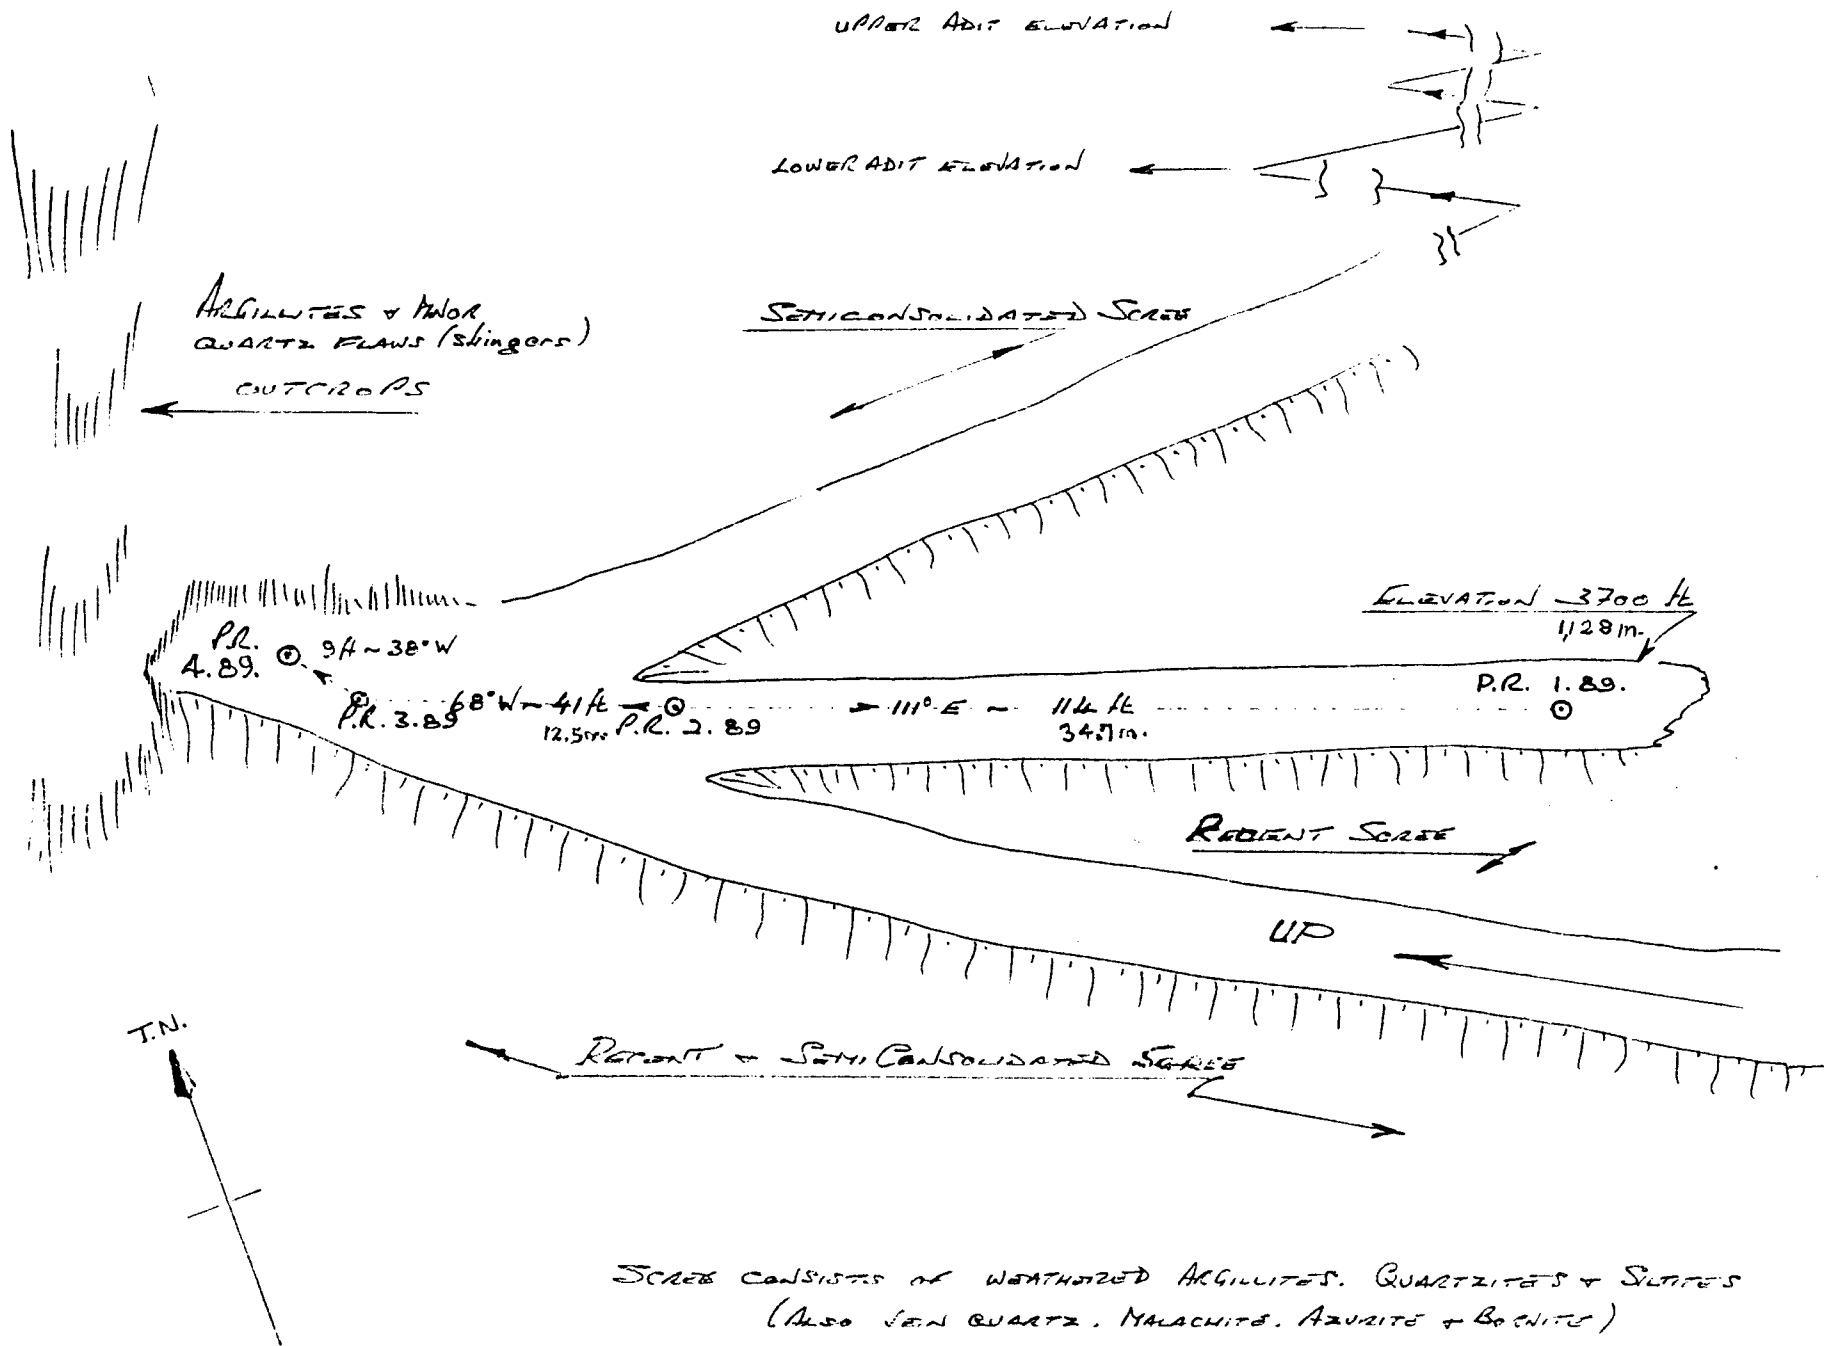 UPPER ADIT ELEVATION
LOWER ADIT ELEVATION
ARGILLITES + MINOR
QUARTZ FLAWS (Stringers)
OUTCROPS
SEMICONSOLIDATED SCREE
ELEVATION ~3700 ft
1,128 m.
P.R.
4.89.
9ft ~ 38°W
P.R. 3.89
68°W ~ 41 ft
12.5m.
P.R. 2.89
111° E ~ 114 ft
34.7m.
P.R. 1.89.
RECENT SCREE
UP
T.N.
RECENT + SEMICONSOLIDATED SCREE
SCREE CONSISTS OF WEATHERED ARGILLITES. QUARTZITES + SILTITES
(ALSO VEIN QUARTZ. MALACHITE. AZURITE + BORNITE)